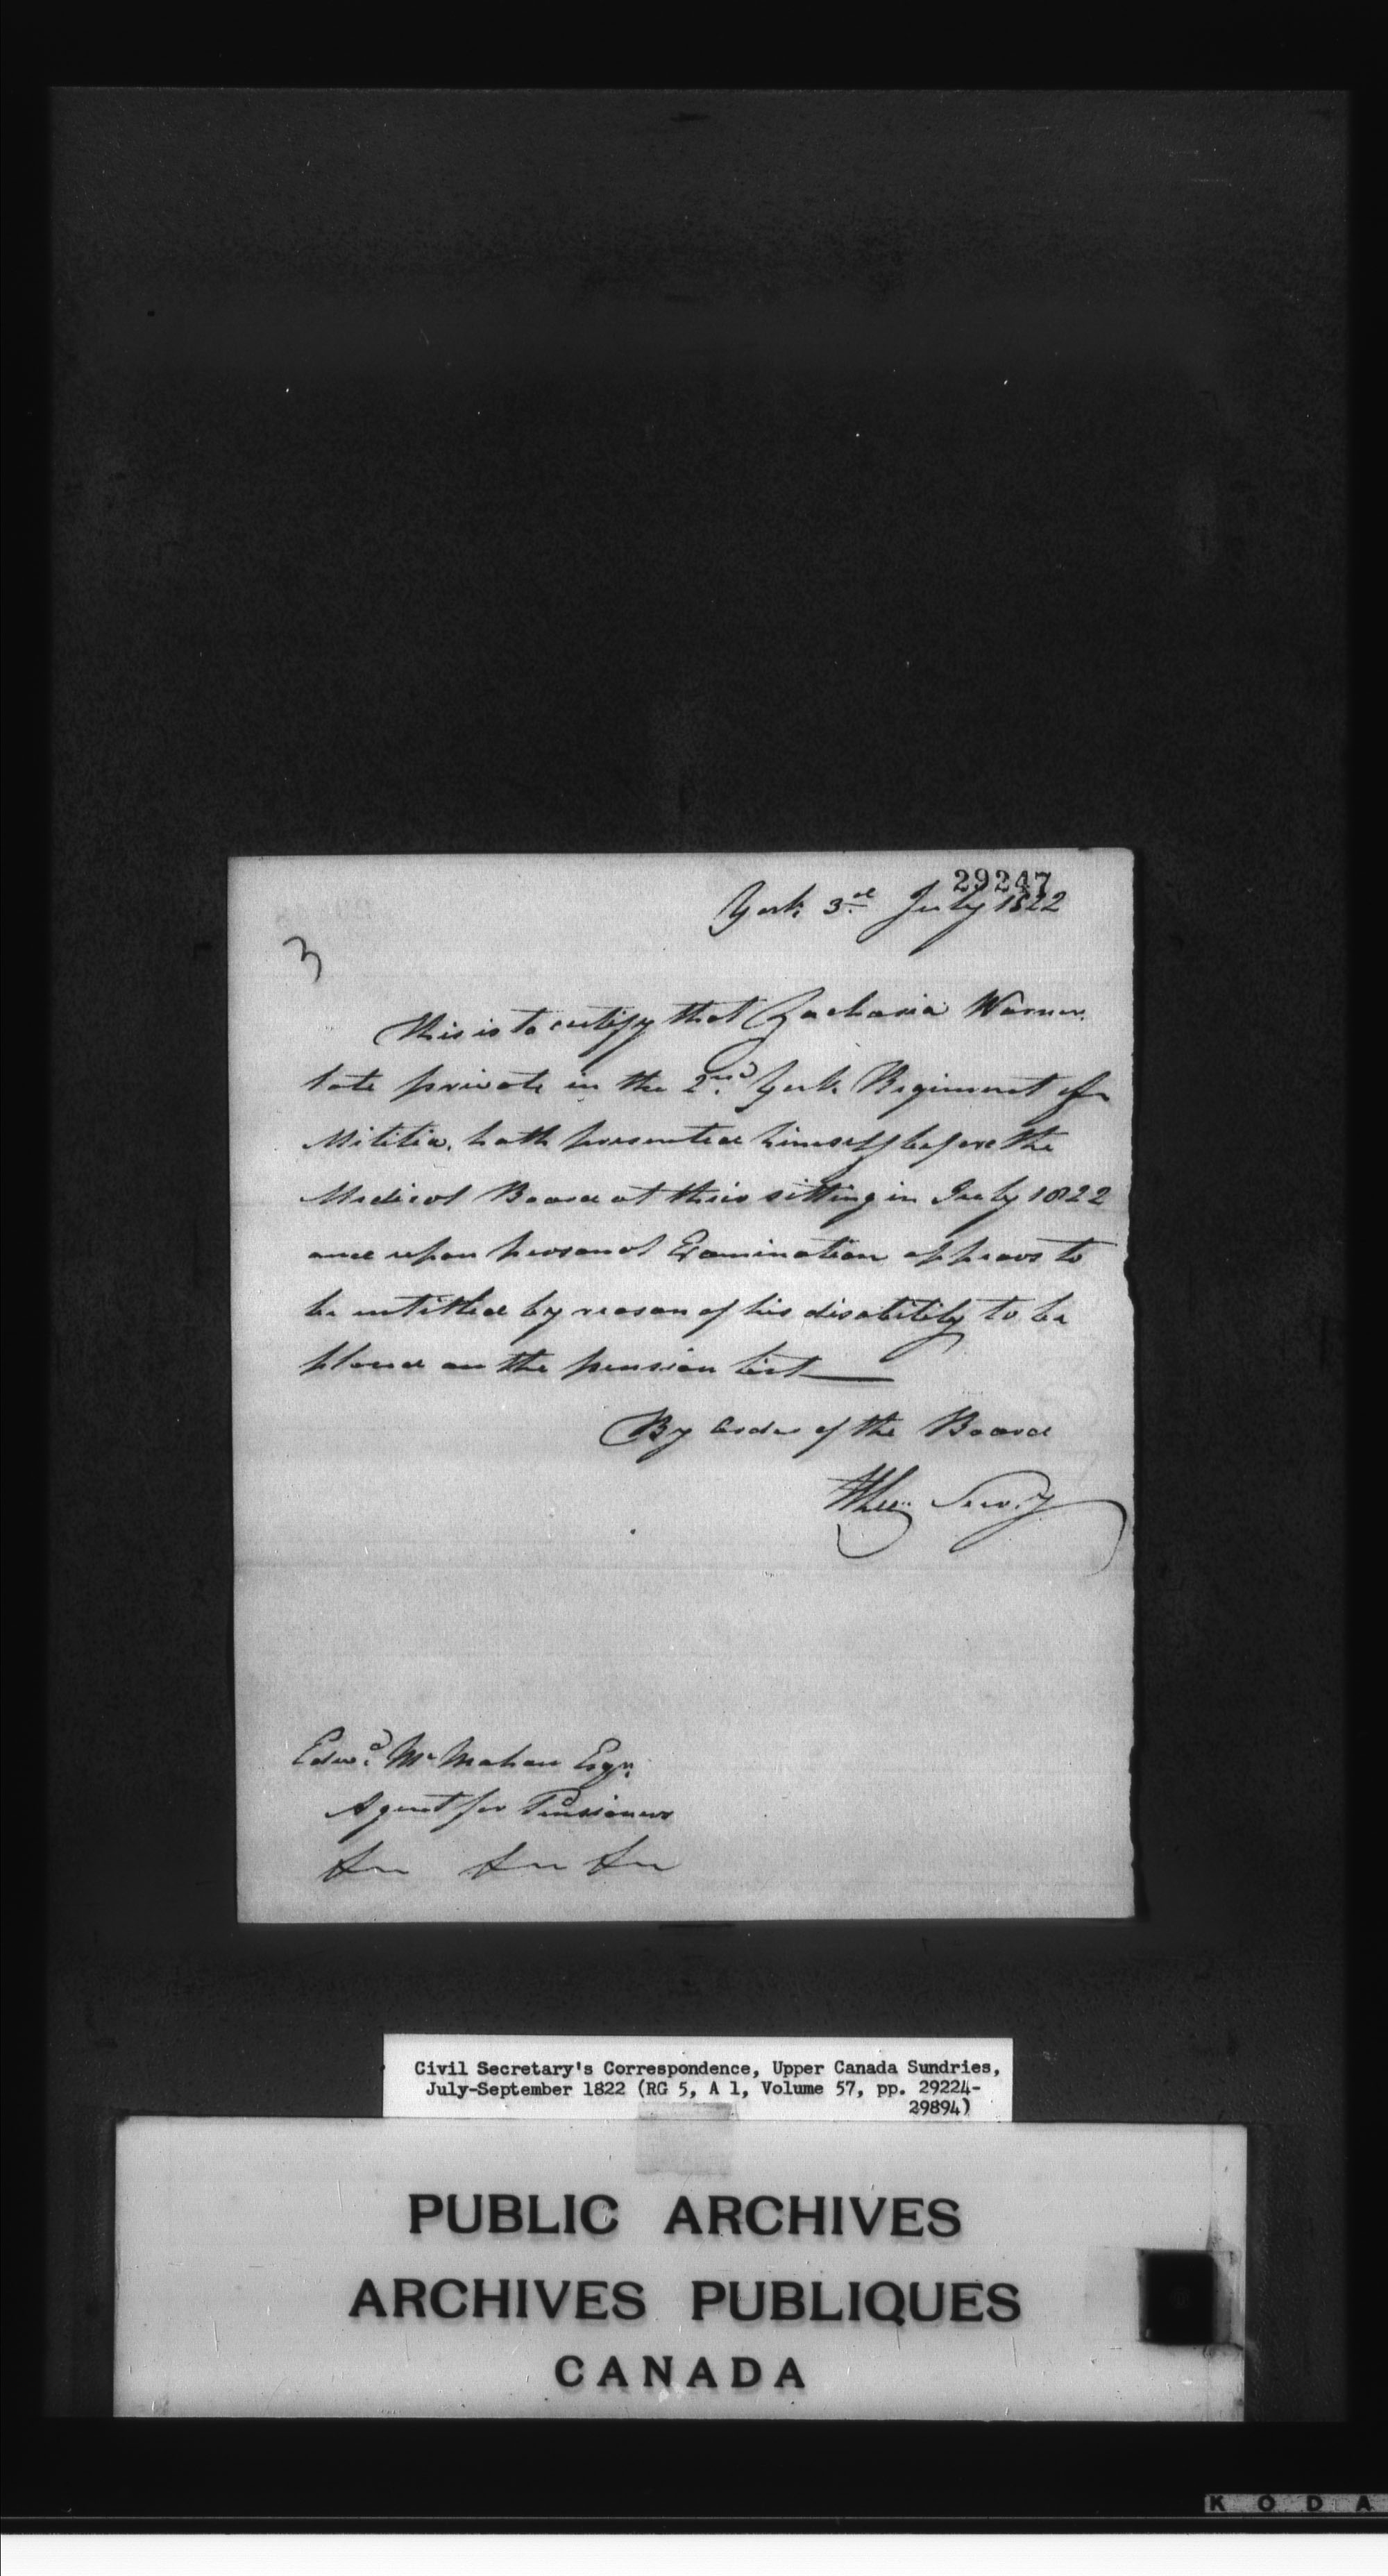 29247
York 3rd July 1822
3
This is to certify that Zacharia Warner
late private in the 2nd York Regiment of
Militia, hath presented himself before the
Medical Board at their sitting in July 1822
and upon personal Examination appears to
be entitled by reason of his disability to be
placed on the pension list
By order of the Board
Secry
Edwd. McMahon Esqr.
Agent for Pensioners
&c &c &c
Civil Secretary's Correspondence, Upper Canada Sundries,
July-September 1822 (RG 5, A 1, Volume 57, pp. 29224-
29894)
PUBLIC ARCHIVES
ARCHIVES PUBLIQUES
CANADA
K O D A